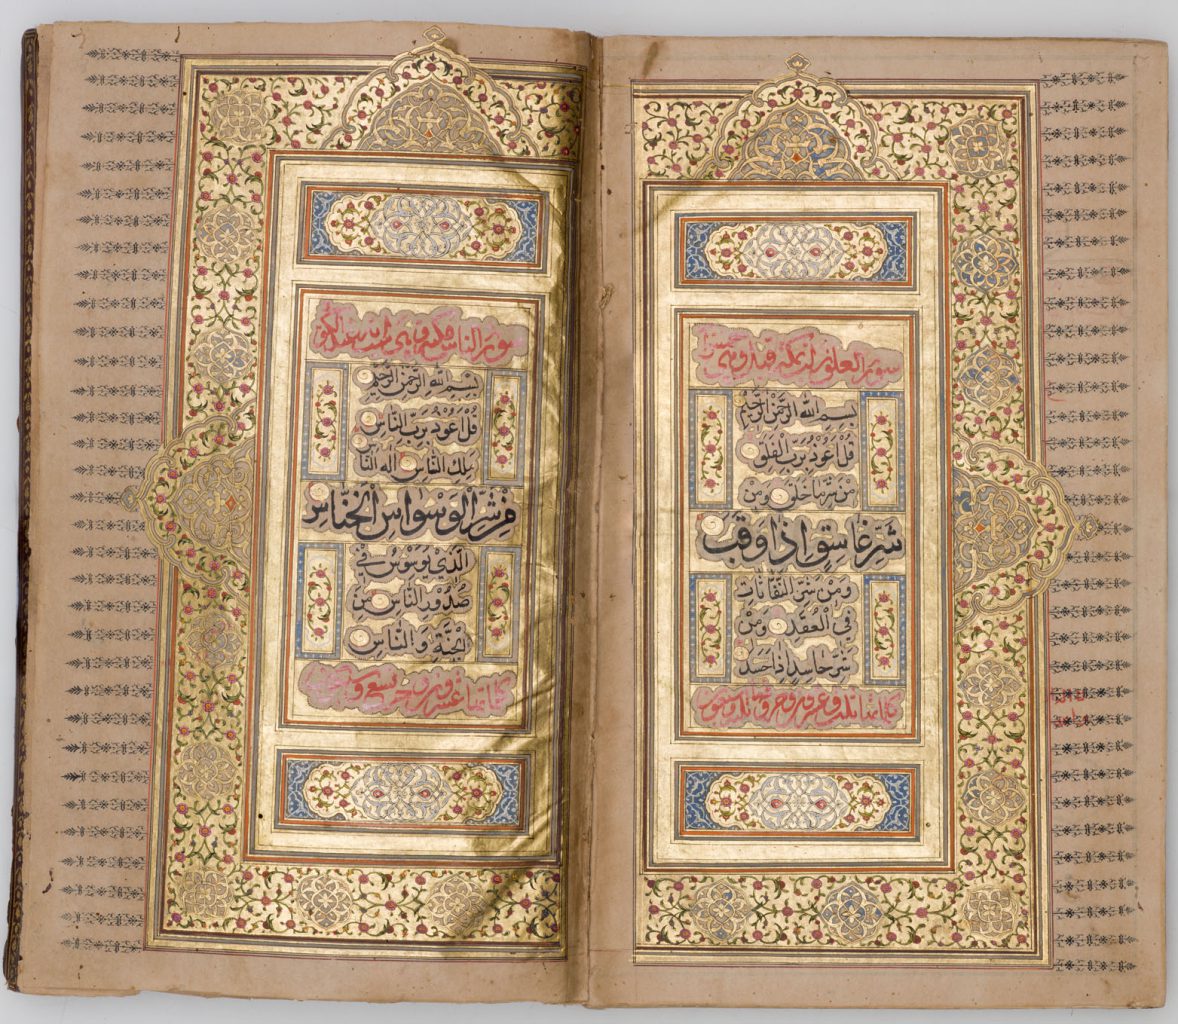 سورة الفلق
بسم الله الرحمن الرحيم
قُلْ اَعُوْذُ بِرَبِّ الْفَلَقِ
مِنْ شَرِّ مَا خَلَقَ وَمِنْ
شَرِّ غَاسِقٍ اِذَا وَقَبَ
وَمِنْ شَرِّ النَّفَّاثَاتِ
فِي الْعُقَدِ وَمِنْ
شَرِّ حَاسِدٍ اِذَا حَسَدَ
سورة الناس
بسم الله الرحمن الرحيم
قُلْ اَعُوْذُ بِرَبِّ النَّاسِ
مَلِكِ النَّاسِ اِلٰهِ النَّاسِ
مِنْ شَرِّ الْوَسْوَاسِ الْخَنَّاسِ
الَّذِي يُوَسْوِسُ فِي
صُدُوْرِ النَّاسِ مِنَ
الْجِنَّةِ وَالنَّاسِ